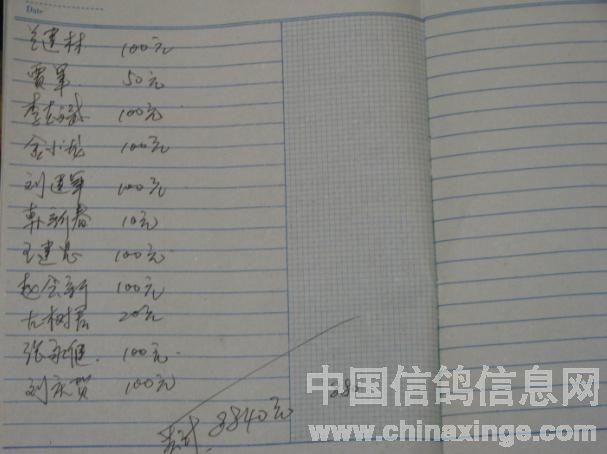 Date
兰建林 100元
贾军 50元
李志斌 100元
金小龙 100元
刘建军 100元
韩新春 10元
王建忠 100元
赵全新 100元
左树君 20元
张永恒 100元
刘庆贺 100元
共计 3840元
中国信鸽信息网
www.chinaxinge.com